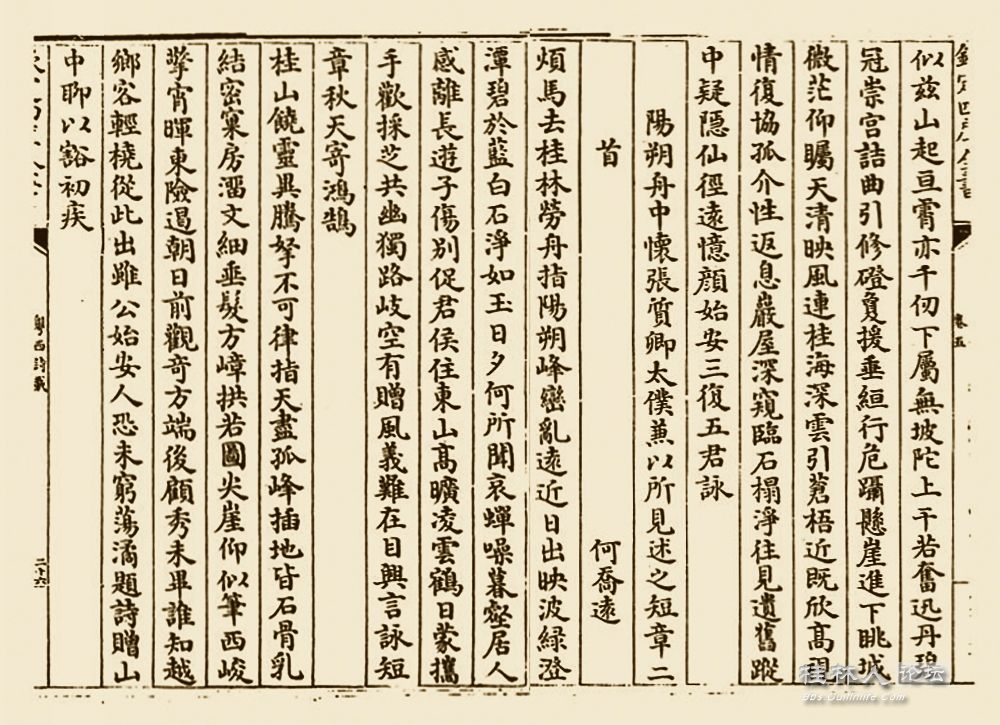 欽定四庫全書
卷五
似茲山起亘霄亦千仞下屬無坡陀上干若奮迅丹碧
冠崇宫詰曲引修磴夐援垂絙行危躡懸崖進下眺城
微茫仰矚天清映風連桂海深雲引蒼梧近既欣高
情復協孤介性返息巖屋深窺臨石榻淨往見遺舊蹤
中疑隱仙徑遠憶顔始安三復五君詠
陽朔舟中懷張質卿太僕兼以所見述之短章二
首
何喬遠
煩馬去桂林勞舟指陽朔峰巒亂遠近日出映波緑澄
潭碧於藍白石淨如玉日夕何所聞哀蟬噪暮壑居人
感離長遊子傷别促君侯住東山髙曠凌雲鶴日蒙攜
手歡採芝共幽獨路岐空有贈風義難在目興言詠短
章秋天寄鴻鵠
桂山饒靈異騰拏不可律指天盡孤峰插地皆石骨乳
結密窠房溜文細垂髮方嶂拱若圖尖崖仰似筆西峻
擎宵暉東險遏朝日前觀奇方端後顧秀未畢誰知越
鄉客輕橈從此出雖公始安人恐未窮蕩潏題詩贈山
中聊以豁初疾
粤西詩載
二十六
桂林人论坛
bbs.Guilinlife.com